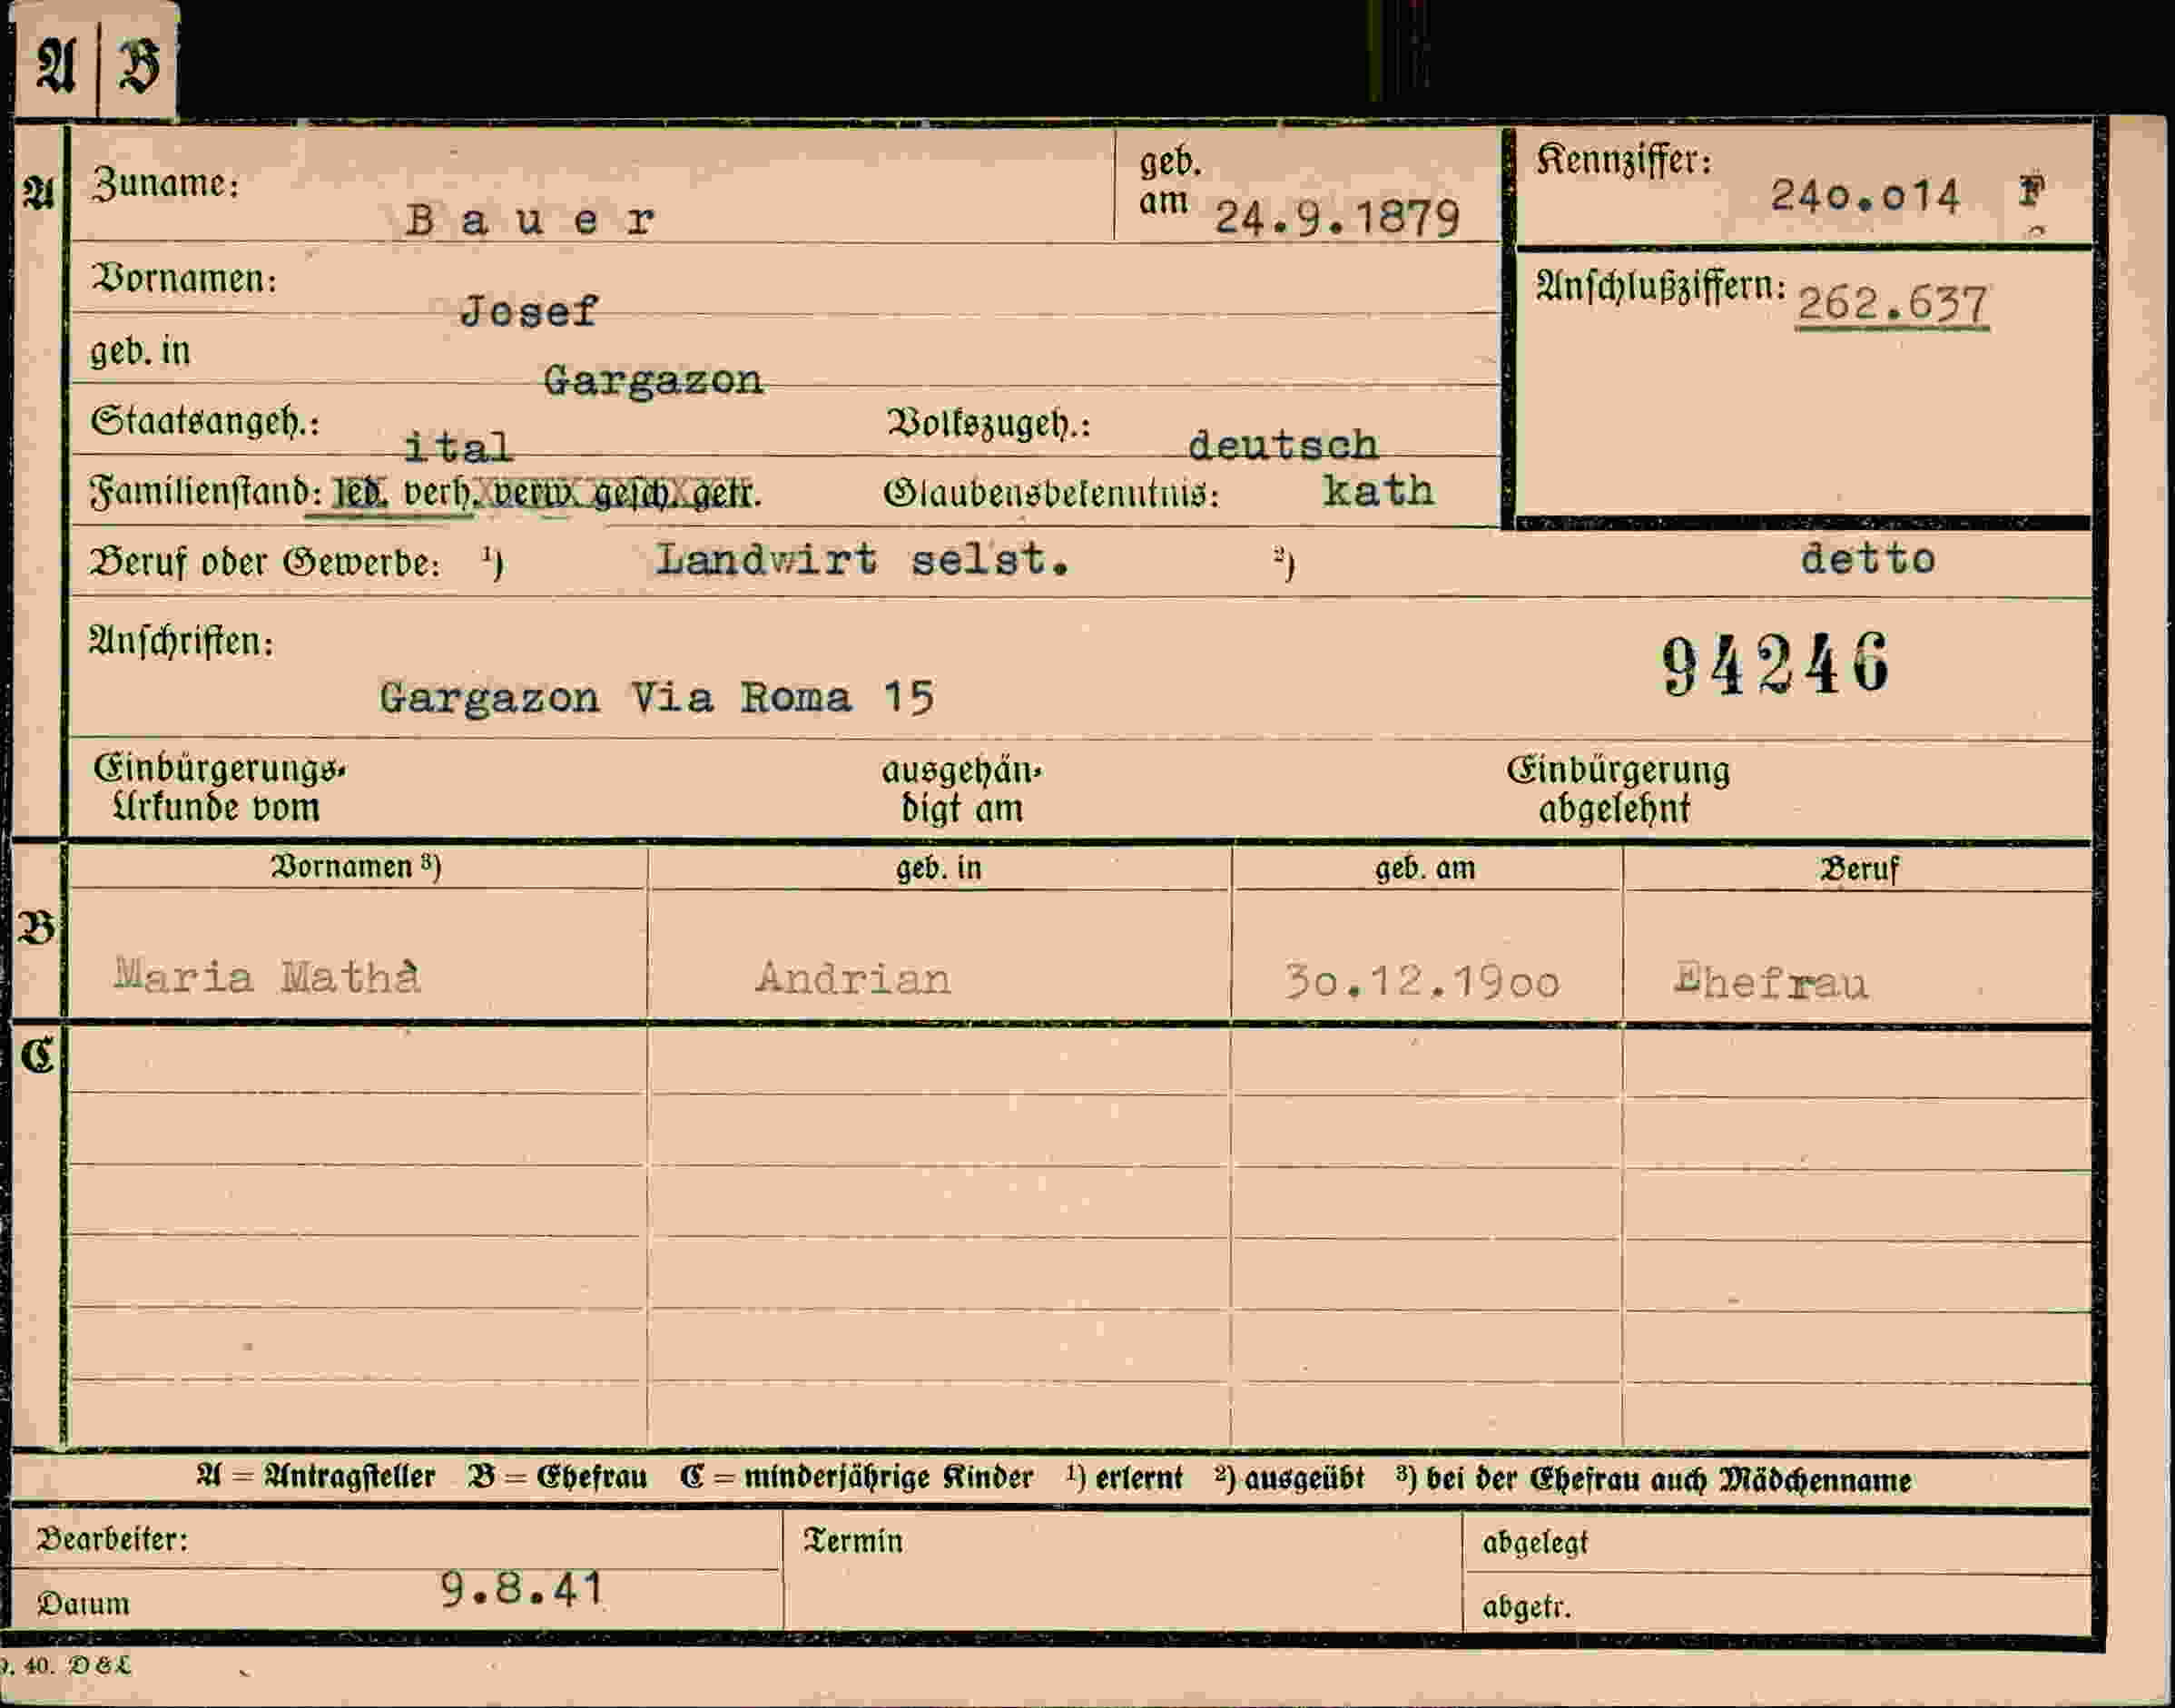 A | B
A
Zuname: Bauer
geb. am 24.9.1879
Kennziffer: 240.014 F
Vornamen: Josef
Anschlußziffern: 262.637
geb. in Gargazon
Staatsangeh.: ital Volkszugeh.: deutsch
Familienstand: led. verh. verw. gesch. getr. Glaubensbekenntnis: kath
Beruf oder Gewerbe: ¹) Landwirt selst. ²) detto
Anschriften: 94246
Gargazon Via Roma 15
Einbürgerungs- ausgehän- Einbürgerung
Urkunde vom digt am abgelehnt
Vornamen ³) geb. in geb. am Beruf
B
Maria Mathà Andrian 30.12.1900 Ehefrau
C
A = Antragsteller B = Ehefrau C = minderjährige Kinder ¹) erlernt ²) ausgeübt ³) bei der Ehefrau auch Mädchenname
Bearbeiter: Termin abgelegt
Datum 9.8.41 abgetr.
40. D & L